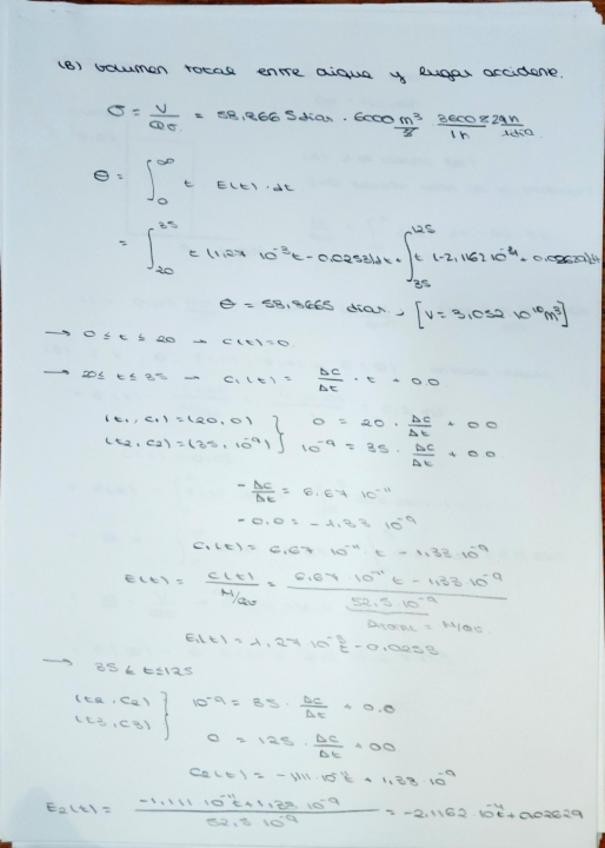 (B) Volumen total entre aigua y lugar accidente.
σ = V/Qσ = 58,8665 dias · 6000 m³/s · 3600 s/1h 24h/1dia
Θ = ∫₀^∞ t E(t)·dt
= ∫₂₀^35 t (1,27 10⁻³t - 0,0253)dt + ∫₃₅^125 t (-2,1162 10⁻⁴ + 0,02629)dt
Θ = 58,8665 dias → [V = 3,052 · 10¹⁰ m³]
→ 0 ≤ t ≤ 20 → C(t)=0
→ 20 ≤ t ≤ 35 → C₁(t) = ΔC/Δt · t + 0.0
(t₁, C₁) = (20, 0) } 0 = 20 · ΔC/Δt + 0 0
(t₂, C₂) = (35, 10⁻⁹) } 10⁻⁹ = 35 · ΔC/Δt + 0 0
- ΔC/Δt = 6,67 10⁻¹¹
- 0.0 = -1,33 10⁻⁹
C₁(t) = 6,67 10⁻¹¹ t - 1,33 · 10⁻⁹
E(t) = C(t)/(M/Qσ) = (6,67 10⁻¹¹ t - 1,33 · 10⁻⁹)/(52,5 · 10⁻⁹)
Atotal = M/Qσ.
E₁(t) = 1,27 · 10⁻³ t - 0,0253
→ 35 ≤ t ≤ 125
(t₂, C₂) } 10⁻⁹ = 35 · ΔC/Δt + 0.0
(t₃, C₃) } 0 = 125 · ΔC/Δt + 0 0
C₂(t) = -1,111 · 10⁻¹¹ t + 1,38 · 10⁻⁹
E₂(t) = (-1,111 10⁻¹¹ t + 1,38 10⁻⁹)/(52,5 10⁻⁹) = -2,1162 · 10⁻⁴ t + 0,02629